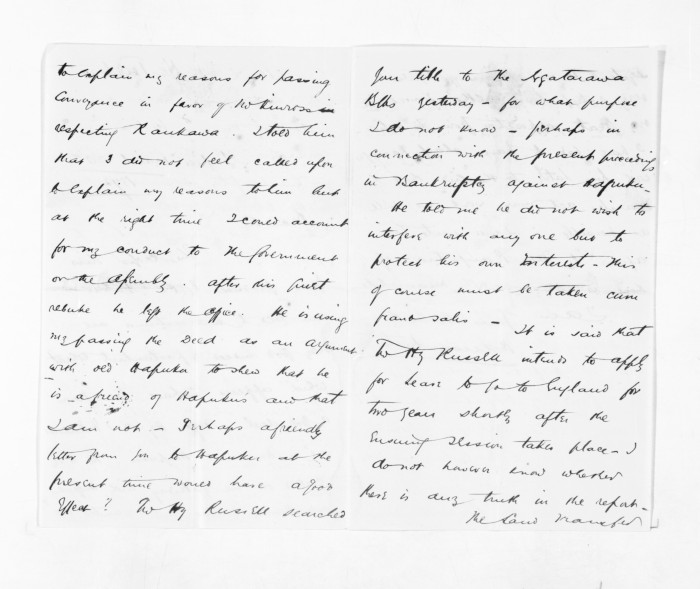 to explain my reasons for passing
Conveyance in favor of Mr Kinross in
respecting Raukawa. I told him
that I did not feel called upon
to explain my reasons to him but
at the right time I could account
for my conduct to the Government
or the Assembly. after this quiet
rebuke he left the office. He is using
my passing the Deed as an argument
with old Hapuku to shew that he
is a friend of Hapukus and that
I am not - Perhaps a friendly
letter from you to Hapuku at the
present time would have a good
Effect? Russell searched
your title to the Ngatarawa
Blks yesterday - for what purpose
I do not know - perhaps in
connection with the present proceedings
in Bankruptcy against Hapuku -
He told me he did not wish to
interfere with any one but to
protect his own Interests - this
of course must be taken cum
grano salis - It is said that
Russell intends to apply
for leave to go to England for
two years shortly after the
Ensuing Session takes place - I
do not however know whether
there is any truth in the report -
The Land Transfer